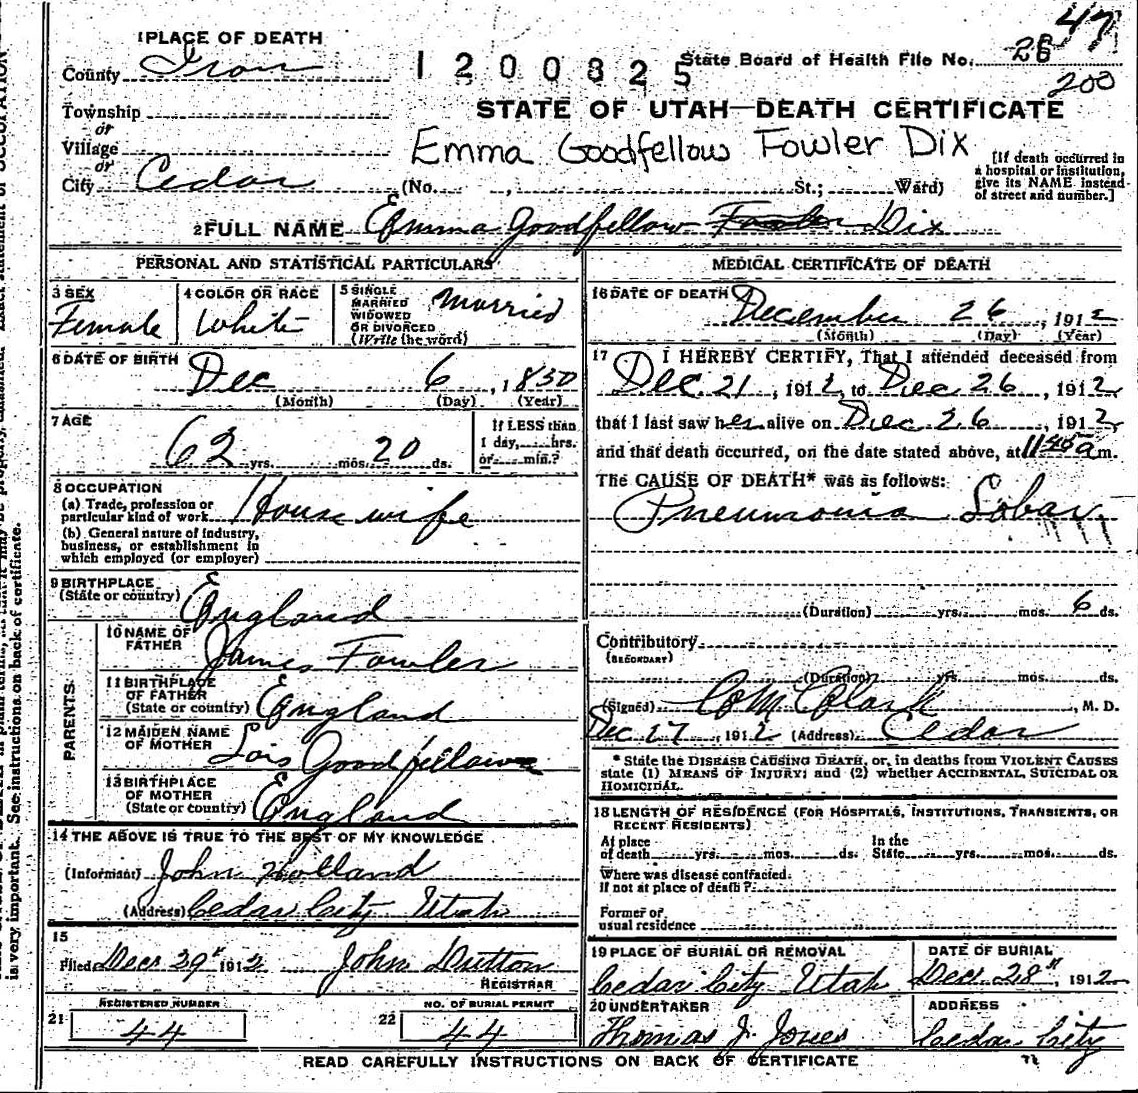 47
1 PLACE OF DEATH
County Iron
1200825
State Board of Health File No. 28
200
Township
or
Village
or
City Cedar
STATE OF UTAH—DEATH CERTIFICATE
Emma Goodfellow Fowler Dix
(No. , St.; Ward)
[If death occurred in
a hospital or institution,
give its NAME instead
of street and number.]
2 FULL NAME Emma Goodfellow Fowler Dix
PERSONAL AND STATISTICAL PARTICULARS
3 SEX
Female
4 COLOR OR RACE
White
5 SINGLE
MARRIED
WIDOWED
OR DIVORCED
(Write the word)
Married
6 DATE OF BIRTH
Dec 6, 1850
(Month) (Day) (Year)
7 AGE
62 yrs. mos. 20 ds.
If LESS than
1 day, hrs.
or min.?
8 OCCUPATION
(a) Trade, profession or
particular kind of work House wife
(b) General nature of industry,
business, or establishment in
which employed (or employer)
9 BIRTHPLACE
(State or country) England
PARENTS
10 NAME OF
FATHER James Fowler
11 BIRTHPLACE
OF FATHER
(State or country) England
12 MAIDEN NAME
OF MOTHER Lois Goodfellow
13 BIRTHPLACE
OF MOTHER
(State or country) England
14 THE ABOVE IS TRUE TO THE BEST OF MY KNOWLEDGE
(Informant) John Holland
(Address) Cedar City Utah
15
Filed Decr 29" 1912 John Dutton
REGISTRAR
REGISTERED NUMBER
21 44
NO. OF BURIAL PERMIT
22 44
MEDICAL CERTIFICATE OF DEATH
16 DATE OF DEATH
December 26, 1912
(Month) (Day) (Year)
17 I HEREBY CERTIFY, That I attended deceased from
Dec 21, 1912, to Dec 26, 1912
that I last saw her alive on Dec 26, 1912
and that death occurred, on the date stated above, at 1145 a m.
The CAUSE OF DEATH* was as follows:
Pneumonia Lobar
(Duration) yrs. mos. 6 ds.
Contributory
(SECONDARY)
(Duration) yrs. mos. ds.
(Signed) Clark, M. D.
Dec 27, 1912 (Address) Cedar
* State the DISEASE CAUSING DEATH, or, in deaths from VIOLENT CAUSES
state (1) MEANS OF INJURY; and (2) whether ACCIDENTAL, SUICIDAL OR
HOMICIDAL.
18 LENGTH OF RESIDENCE (FOR HOSPITALS, INSTITUTIONS, TRANSIENTS, OR
RECENT RESIDENTS)
At place In the
of death yrs. mos. ds. State yrs. mos. ds.
Where was disease contracted,
if not at place of death?
Former or
usual residence
19 PLACE OF BURIAL OR REMOVAL
Cedar City Utah
DATE OF BURIAL
Decr 28", 1912
20 UNDERTAKER
Thomas J. Jones
ADDRESS
Cedar City
READ CAREFULLY INSTRUCTIONS ON BACK OF CERTIFICATE
is very important. See instructions on back of certificate.